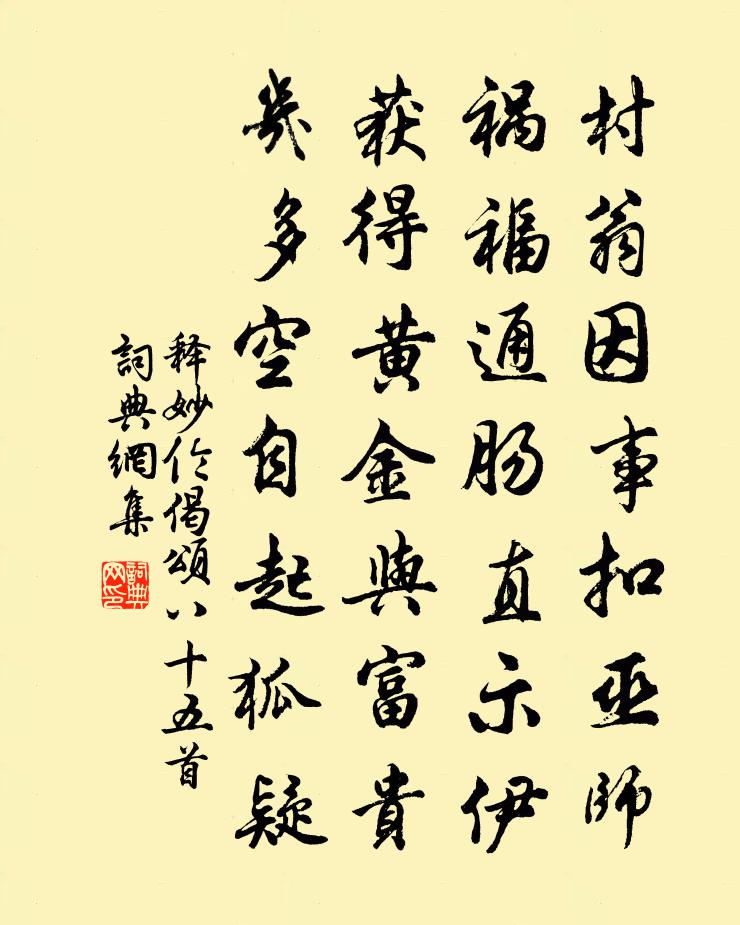 村翁因事扣巫師
禍福通肠直示伊
获得黄金與富貴
幾多空自起狐疑
释妙伦偈頌八十五首
詞典網集
詞典网印